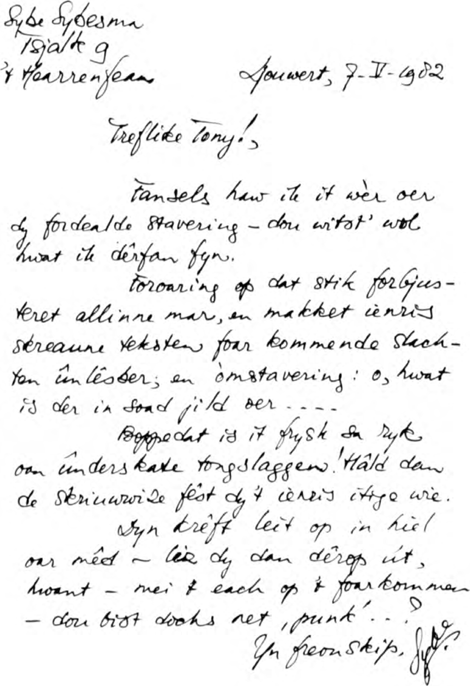 Sybe Sybesma
Tsjalk 9
't Hearrenfean
Jouwert, 7-IV-1982
Treflike Tony!,
Fansels haw ik it wèr oer
dy fordealde stavering – dou witst' wol
hwat ik dêrfan fyn.
Foroaring op dat stik forbjus-
teret allinne mar, en makket ienris
skreaune teksten foar kommende slach-
ten ûnlêsber; en omstavering: o, hwat
is der in soad jild oer ....
dat is it frysk sa ryk
oan ûnderskate tongslaggen! Hâld dan
de skriuwwize fêst dy't ienris itige wie.
Dyn krêft leit op in hiel
oar mêd – lis dy dan dêrop út,
hwant – mei 't each op 't foarkommen
– dou bist dochs net 'punk'...?
Yn freonskip, Sybe.